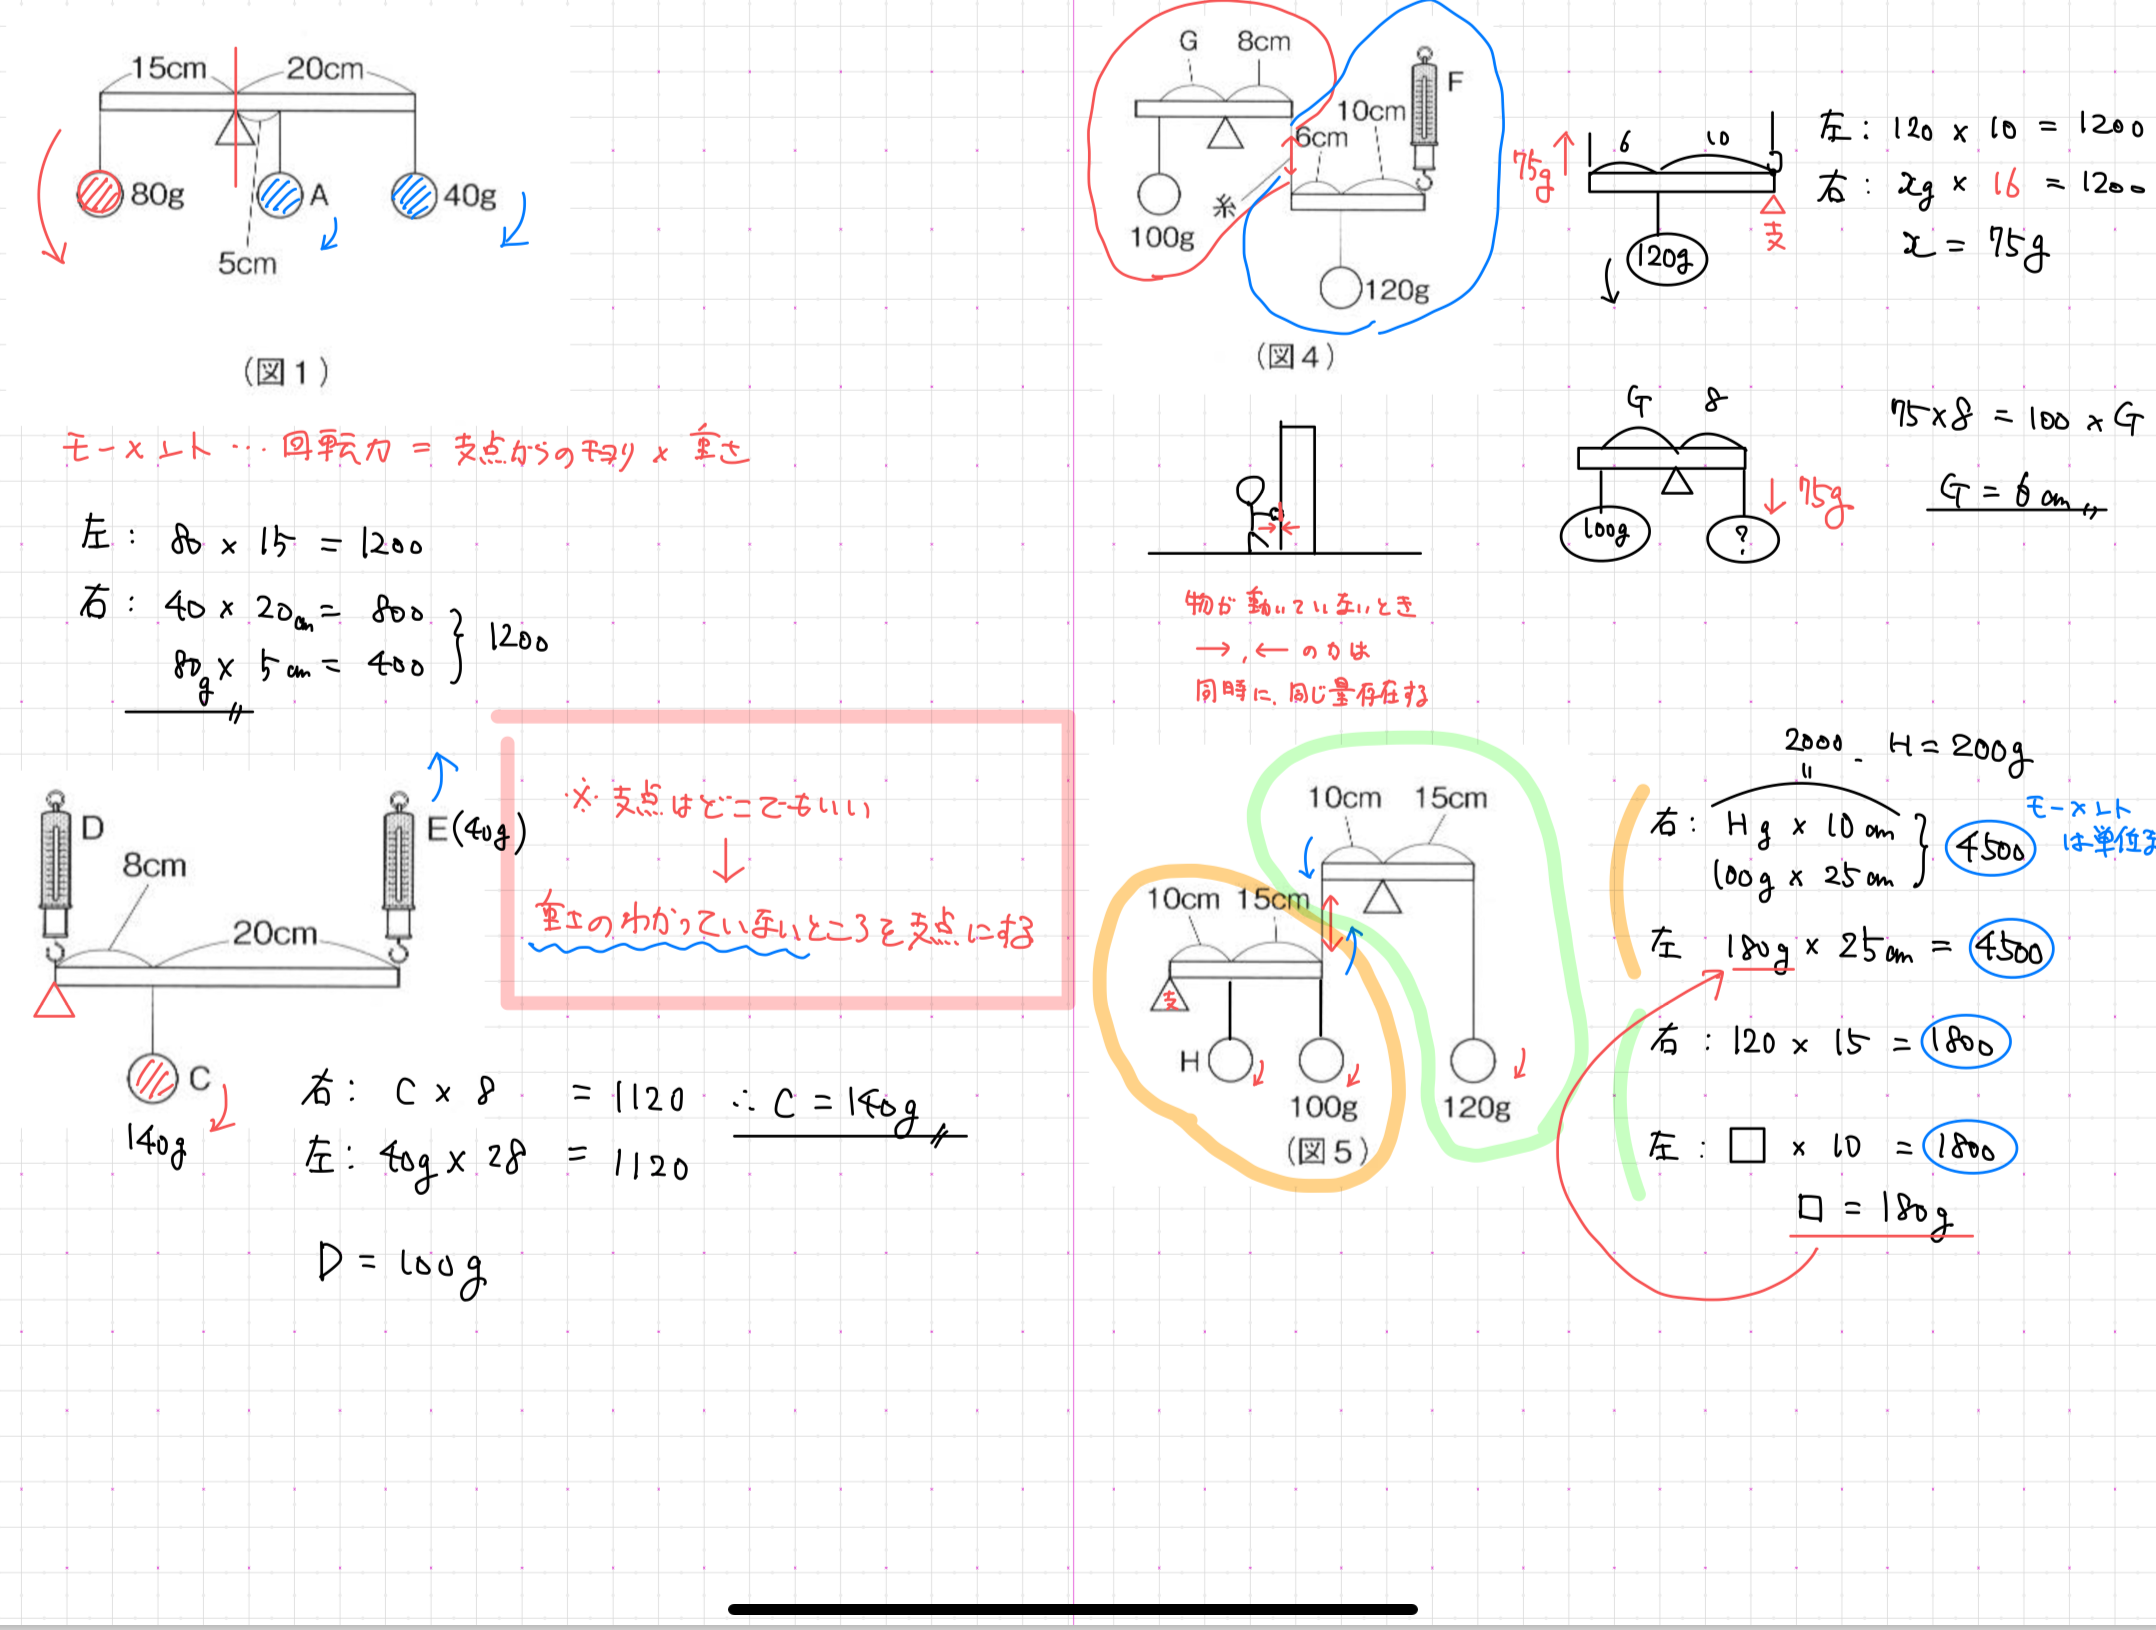 15cm 20cm
80g A 40g
5cm
(図1)
モーメント…回転力 = 支点からのキョリ × 重さ
左: 80 × 15 = 1200
右: 40 × 20cm = 800
80g × 5cm = 400
1200
D E(40g)
8cm
20cm
C
140g
※ 支点はどこでもいい
↓
重さのわかっていないところを支点にする
右: C × 8 = 1120 ∴ C = 140g
左: 40g × 28 = 1120
D = 100g
G 8cm
F
10cm
6cm
糸
100g
120g
(図4)
75g 6 10
120g
支
左: 120 × 10 = 1200
右: xg × 16 = 1200
x = 75g
G 8
100g ? 75g
75×8 = 100×G
G = 6cm
物が動いていないとき
→, ← の力は
同時に、同じ量存在する
10cm 15cm
10cm 15cm
支
H
100g 120g
(図5)
2000 H = 200g
右: Hg × 10cm
100g × 25cm
4500
モーメント
は単位
左 180g × 25cm = 4500
右: 120 × 15 = 1800
左: □ × 10 = 1800
□ = 180g